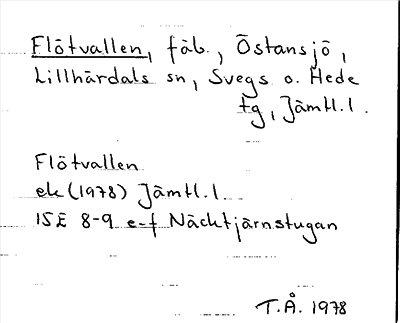 Flötvallen, fäb., Östansjö,
Lillhärdals sn, Svegs o. Hede
tg, Jämtl.l.
Flötvallen
ek (1978) Jämtl.l.
15E 8-9 e-f Näcktjärnstugan
T.Å. 1978